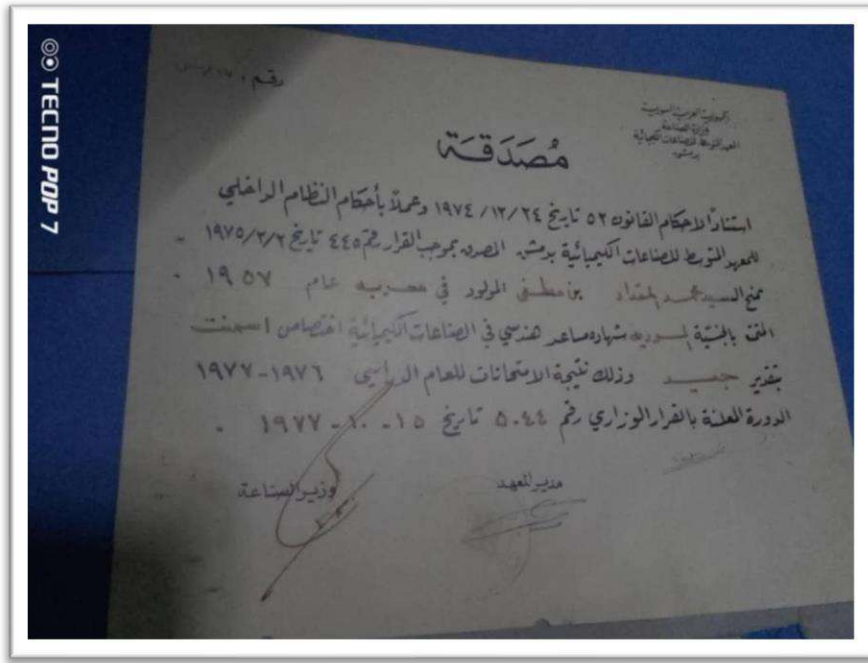 TECNO POP 7
رقم :
الجمهورية العربية السورية
وزارة الصناعة
المعهد المتوسط للصناعات الكيميائية
بدمشق
مُصَدَقَة
استناداً لأحكام القانون ٥٢ تاريخ ٢٤/ ١٢/ ١٩٧٤ وعملاً بأحكام النظام الداخلي
للمعهد المتوسط للصناعات الكيميائية بدمشق المصدق بموجب القرار رقم ٤٤٥ تاريخ ٢/ ٢/ ١٩٧٥ .
يمنح السيد محمد المقداد بن مصطفى المولود في معربه عام ١٩٥٧ .
المتمتع بالجنسية السورية شهادة مساعد هندسي في الصناعات الكيميائية اختصاص اسمنت
بتقدير جيد وذلك نتيجة الامتحانات للعام الدراسي ١٩٧٦-١٩٧٧
الدورة المعلنة بالقرار الوزاري رقم ٥٠٤٤ تاريخ ١٥-١٠-١٩٧٧ .
مدير المعهد
وزير الصناعة